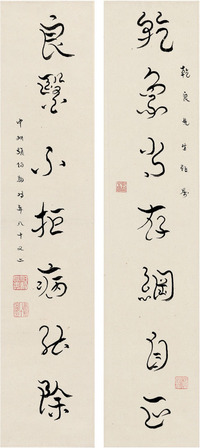 乾象常存綱自正
乾良先生雅屬
良醫不拒病能除
中州張伯駒時年八十又二